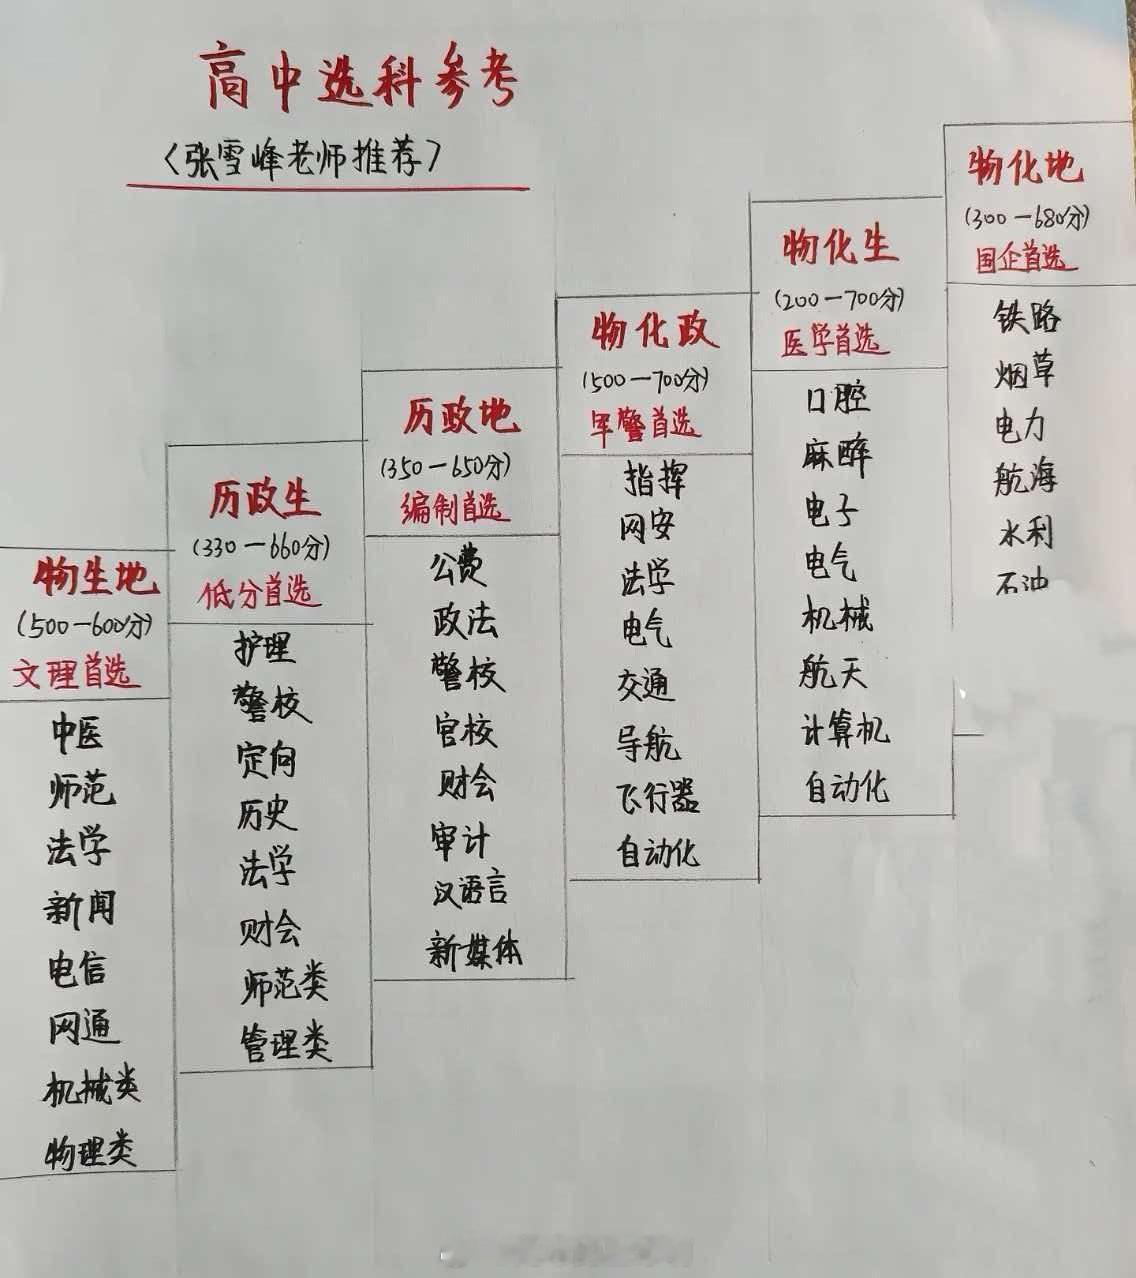 高中选科参考
〈张雪峰老师推荐〉
物生地
(500—600分)
文理首选
中医
师范
法学
新闻
电信
网通
机械类
物理类
历政生
(330—660分)
低分首选
护理
警校
定向
历史
法学
财会
师范类
管理类
历政地
(350—650分)
编制首选
公费
政法
警校
官校
财会
审计
汉语言
新媒体
物化政
(500—700分)
军警首选
指挥
网安
法学
电气
交通
导航
飞行器
自动化
物化生
(200—700分)
医学首选
口腔
麻醉
电子
电气
机械
航天
计算机
自动化
物化地
(300—680分)
国企首选
铁路
烟草
电力
航海
水利
石油